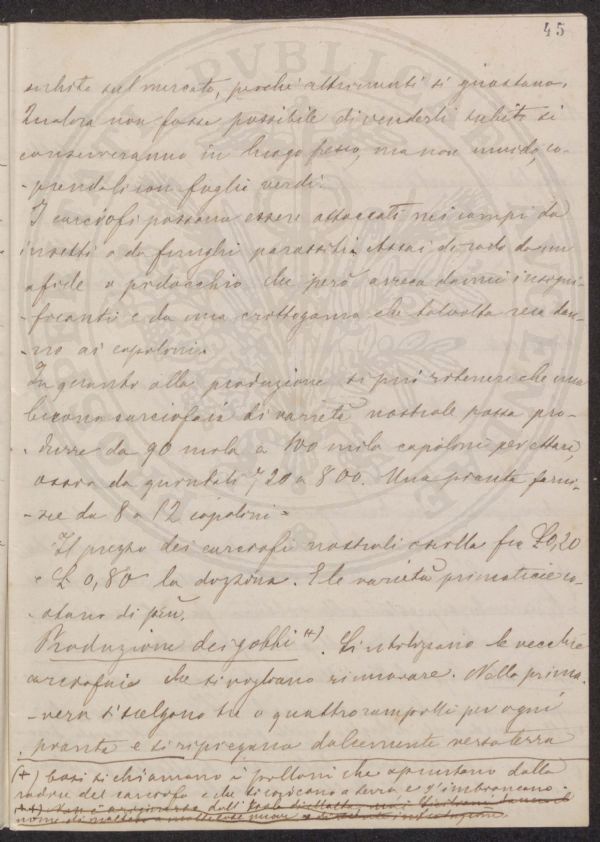 45
subito sul mercato, poiché altrimenti si guastano.
Qualora non fosse possibile di venderli subito si
conserveranno in luogo fresco, ma non umido, co-
-prendoli con foglie verdi.
I carciofi possono essere attaccati nei campi da
insetti o da funghi parassiti. Assai di rado da un
afide o pidocchio che però arreca danni insigni-
ficanti e da una crittogama che talvolta reca dan-
-no ai capolini.
In quanto alla produzione si può ritenere che una
buona carciofaia di varietà nostrale possa pro-
-durre da 90 mila a 100 mila capolini per ettaro,
ossia da quintali 720 a 800. Una pianta forni-
-sce da 8 a 12 capolini.
Il prezzo dei carciofi nostrali oscilla fra £ 0,20
e £ 0,80 la dozzina. E le varietà primaticcie co-
-stano di più.
Produzione dei gobbi (+). Si utilizzano le vecchie
carciofaie che si vogliono rinnovare. Nella prima-
-vera si scelgono tre o quattro rampolli per ogni
pianta e si ripiegano dolcemente verso terra
(+) Così si chiamano i polloni che spuntano dalla
radice del carciofo e che si coricono a terra e s'imbiancano.
(++) dall'
nome di